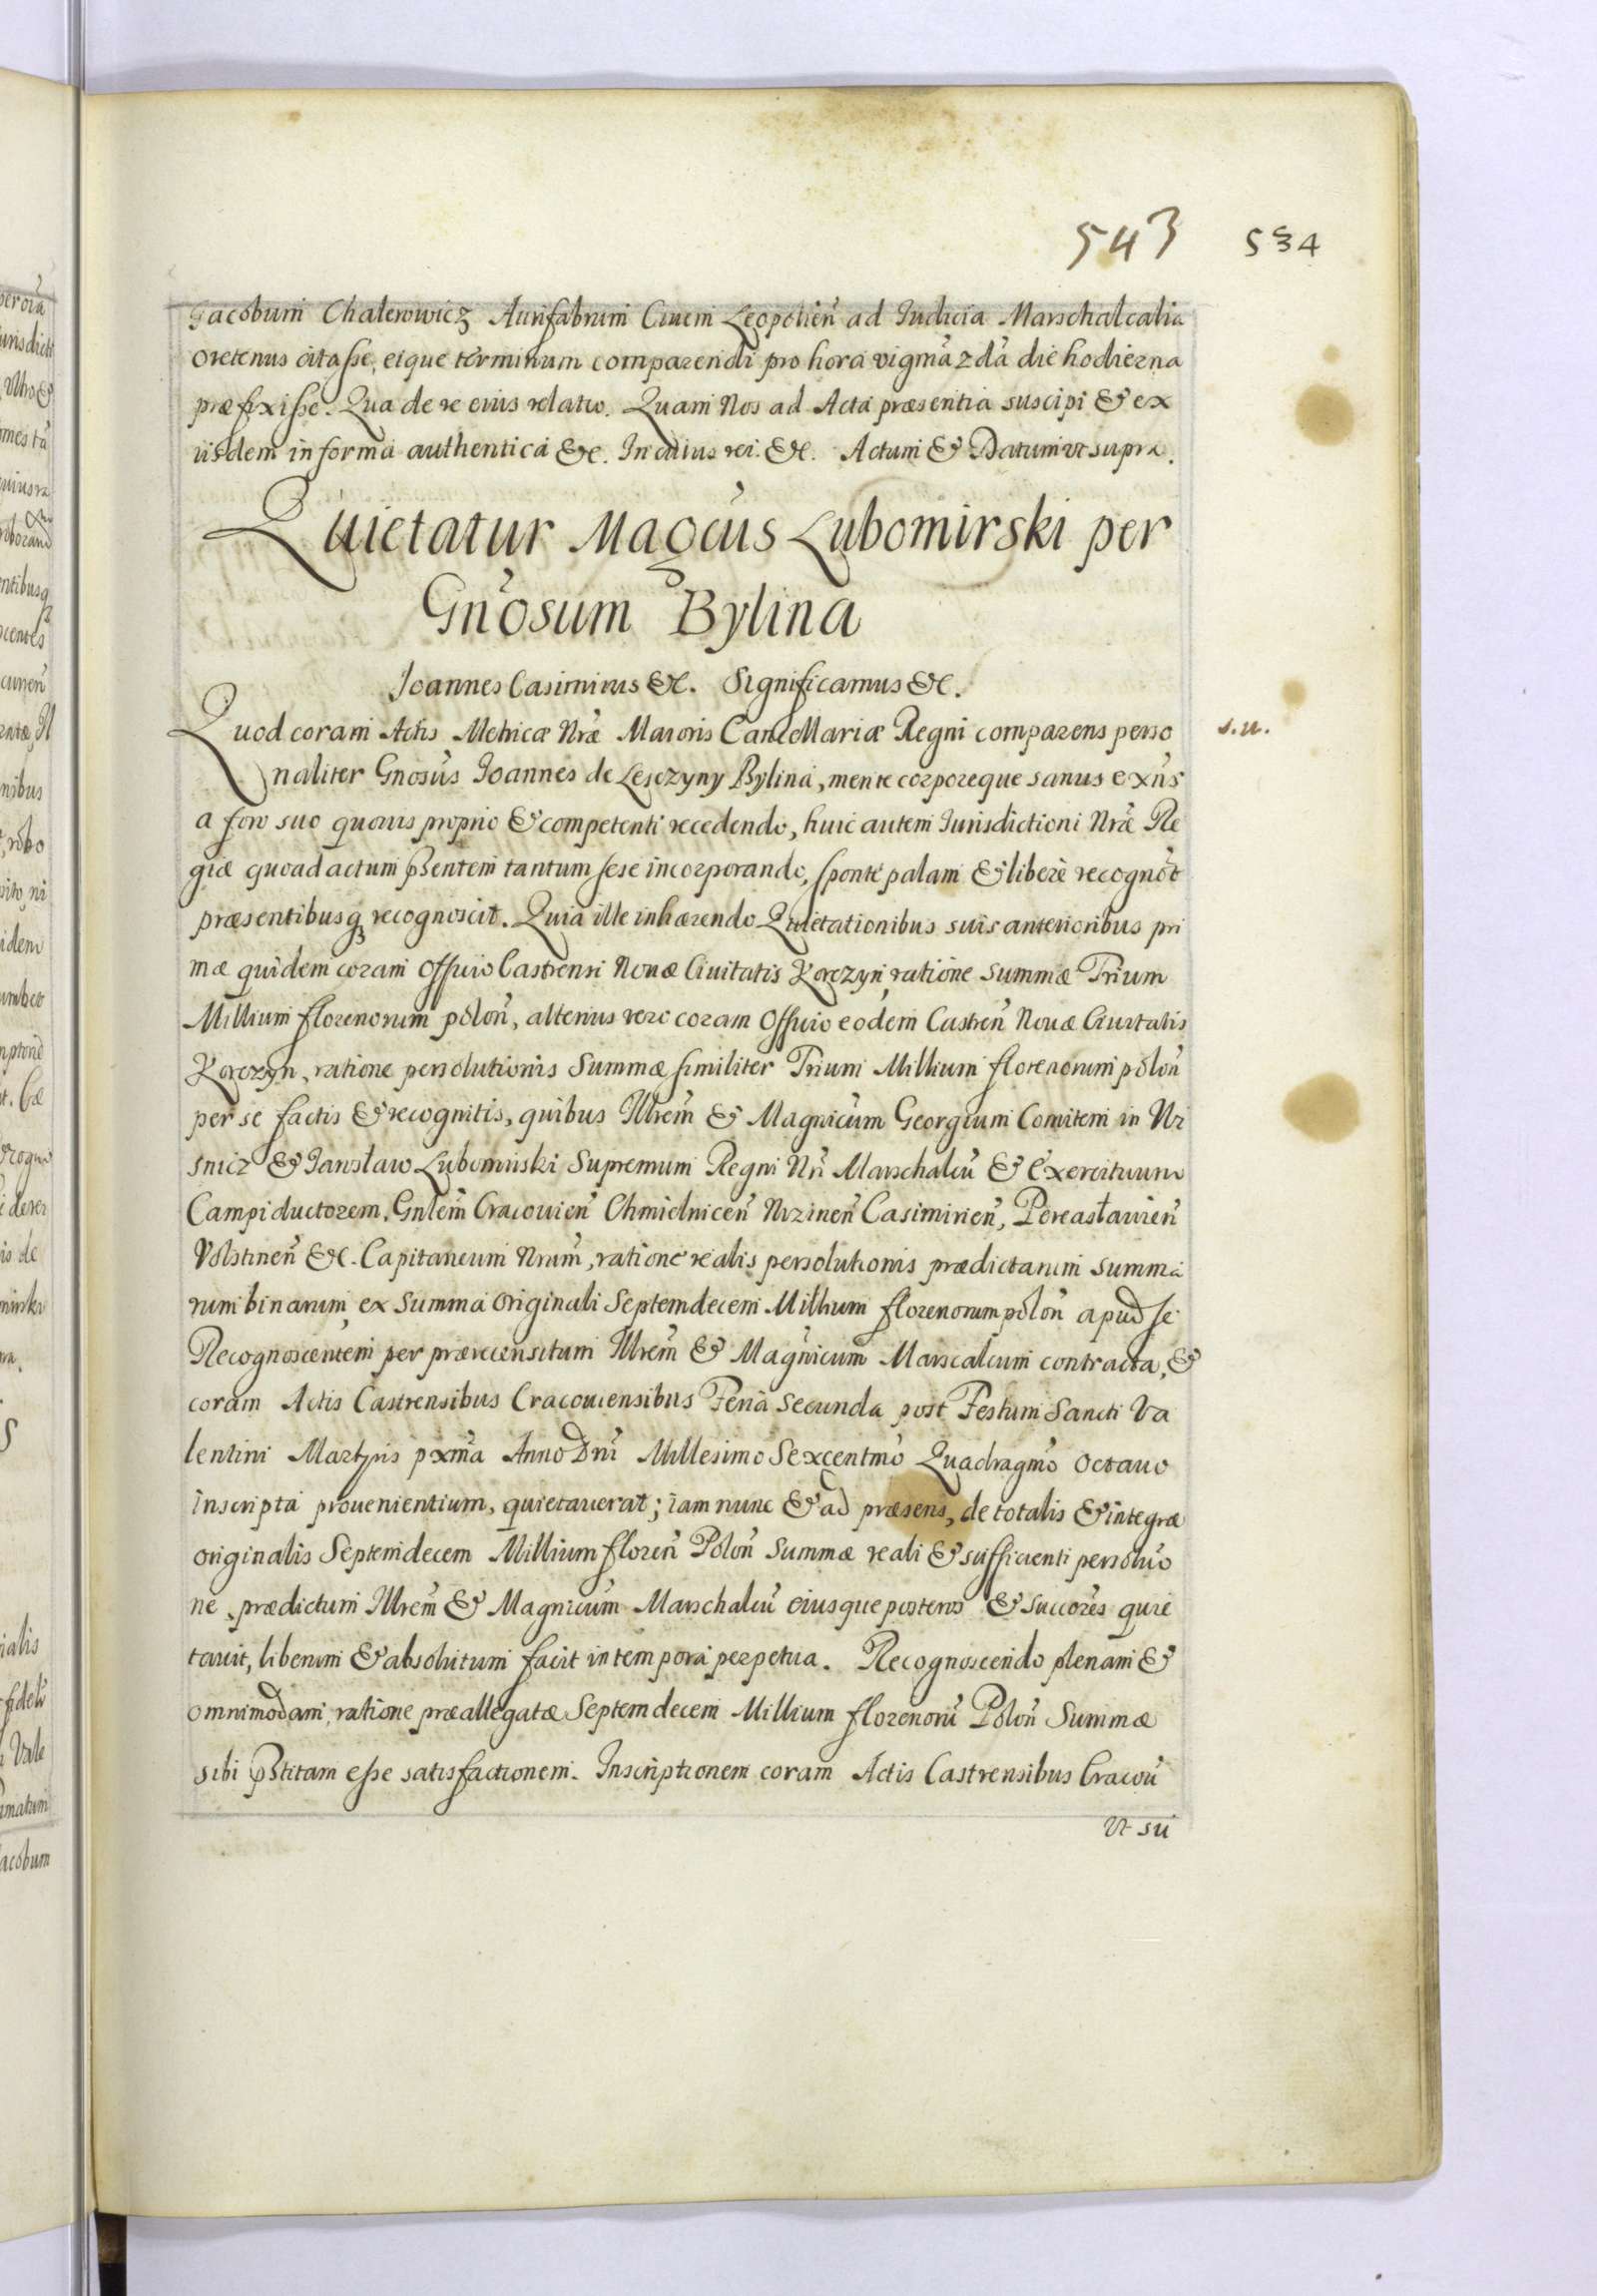 543 534
Jacobum Chalerowicz Aurifabrum Ciuem Leopolien̄ ad Iudicia Marschalcalia
oretenus citasse, eique terminum comparendi pro hora vigm̄a 2dā die hodierna
præfixisse. Qua de re eius relatio. Quam Nos ad Acta præsentia suscipi & ex
iisdem in forma authentica &c. In cuius rei. &c. Actum & Datum vt supra.
Quietatur Mag̃cus Lubomirski per
Gn̄osum Bylina
Joannes Casimirus &c. Significamus &c.
Quod coram Actis Metricæ Nr̄æ Maioris Cancellariæ Regni comparens perso
s. n.
naliter Gnosūs Joannes de Lesczyny Bylina, mente corporeque sanus exn̄s
a foro suo quouis proprio & competenti recedendo, huic autem Iurisdictioni Nr̄æ Re
giæ quoad actum p̄sentem tantum sese incorporando, sponte palam & libere recogno̅t
præsentibusq; recognoscit. Quia ille inhærendo Quietationibus suis anterioribus pri
mæ quidem coram Officio Castrensi Nouæ Ciuitatis Korczyn, ratione summæ Trium
Millium florenorum polon̄, alterius vero coram Officio eodem Castren̄ Nouæ Ciuitatis
Korczyn, ratione persolutionis Summæ similiter Trium Millium florenorum polon̄
per se factis & recognitis, quibus Illrem̄ & Magnicūm Georgium Comitem in Wi
snicz & Jarosław Lubomirski Supremum Regni Nr̄i Marschalcū & Exercituum
Campiductorem, Gnlēm Cracouien̄ Chmielnicen̄ Nizinen̄ Casimirien̄, Pereasłauien̄
Volstinen̄ &c. Capitaneum Nrum̄, ratione realis persolutionis prædictarum summa
rum binarum, ex Summa Originali Septemdecem Millium florenorum polon̄ apud se
Recognoscentem per præreccensitum Illrem̄ & Magn̄icum Marscalcum contracta, &
coram Actis Castrensibus Cracouiensibus Feria Secunda post Festum Sancti Va
lentini Martyris pxm̄a Anno Dn̄i Millesimo Sexcentmō Quadragmō Octauo
inscripta prouenientium, quietauerat; iam nunc & ad præsens, de totalis & integræ
originalis Septemdecem Millium floren̄ Polon̄ Summæ reali & sufficienti persolūo
ne, prædictum Illrem̄ & Magnicūm Marschalcū eiusque posteros & succorēs quie
tauit, liberum & absolutum facit in tempora perpetua. Recognoscendo plenam &
omnimodam, ratione præallegatæ Septemdecem Millium florenorū Polon̄ Summæ
sibi p̄stitam esse satisfactionem. Inscriptionem coram Actis Castrensibus Cracou̅
vt su